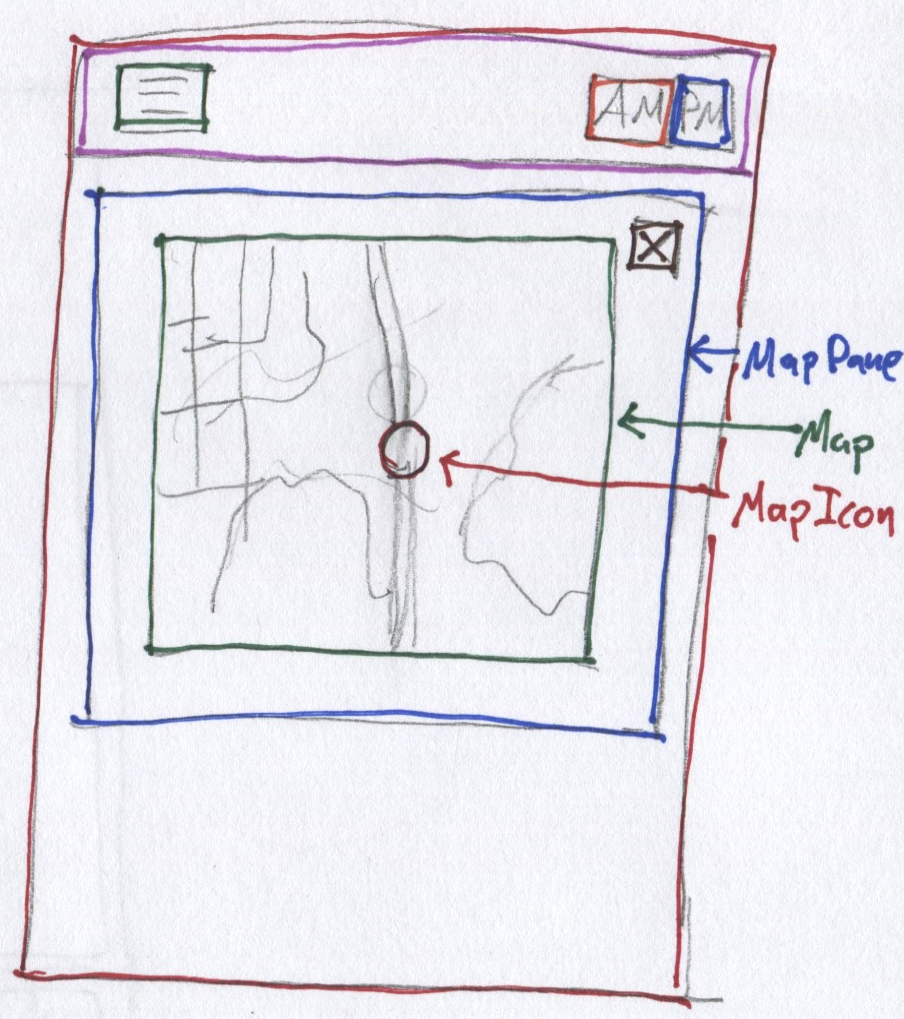 AM PM
MapPane
Map
MapIcon